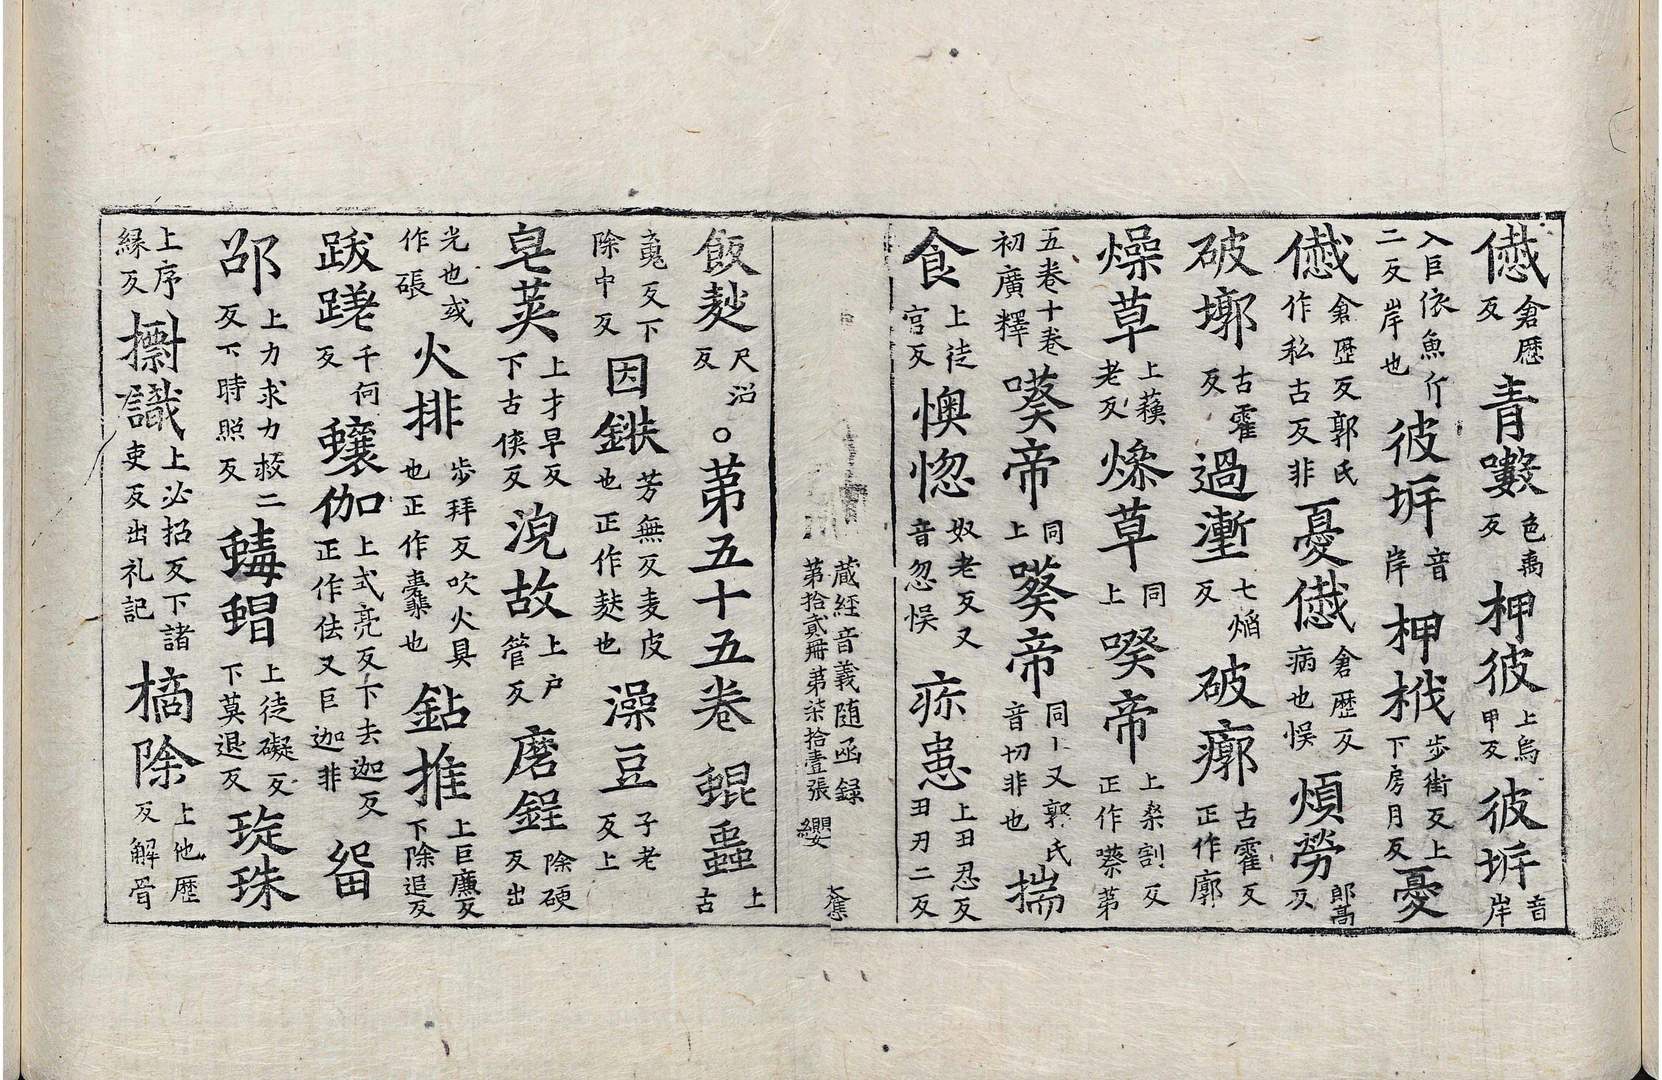 倉歷反青數色禹反柙彼上烏甲反彼㟁音岸
入巨依魚斤二反岸也彼㟁音岸柙栰步街反上下房月反憂
倉歷反郭氏作私古反非憂倉歷反病也悞煩勞郎高反
破墎古霍反過壍七焰反破廓古霍反正作廓
燥草上蘓老反草同上帝上桑割反正作第
五卷十卷初廣釋帝同上帝同上又郭氏音切非也揣
食上徒官反懊惚奴老反又音忽悞疢患上丑忍反丑刃二反
藏經音義随函録
第拾貳冊第柒拾壹張 纓
飯麨尺沼反。第五十五卷蜫蟲上古
反下除中反因芳無反麦皮也正作麸也澡豆子老反上
皂莢上才早反下古俠反况故上户管反磨鋥除硬反出
光也或作張火排步拜反吹火具也正作橐也鉆推上巨廉反下除追反
跋蹉千何反蠰伽上式亮反下去迦反正作佉又巨迦非留
邵上力求力救二反下時照反蝳蝐上徒礙反下莫退反琁珠
上序縁反識上必招反下諸吏反出礼記擿除上他歷反解骨